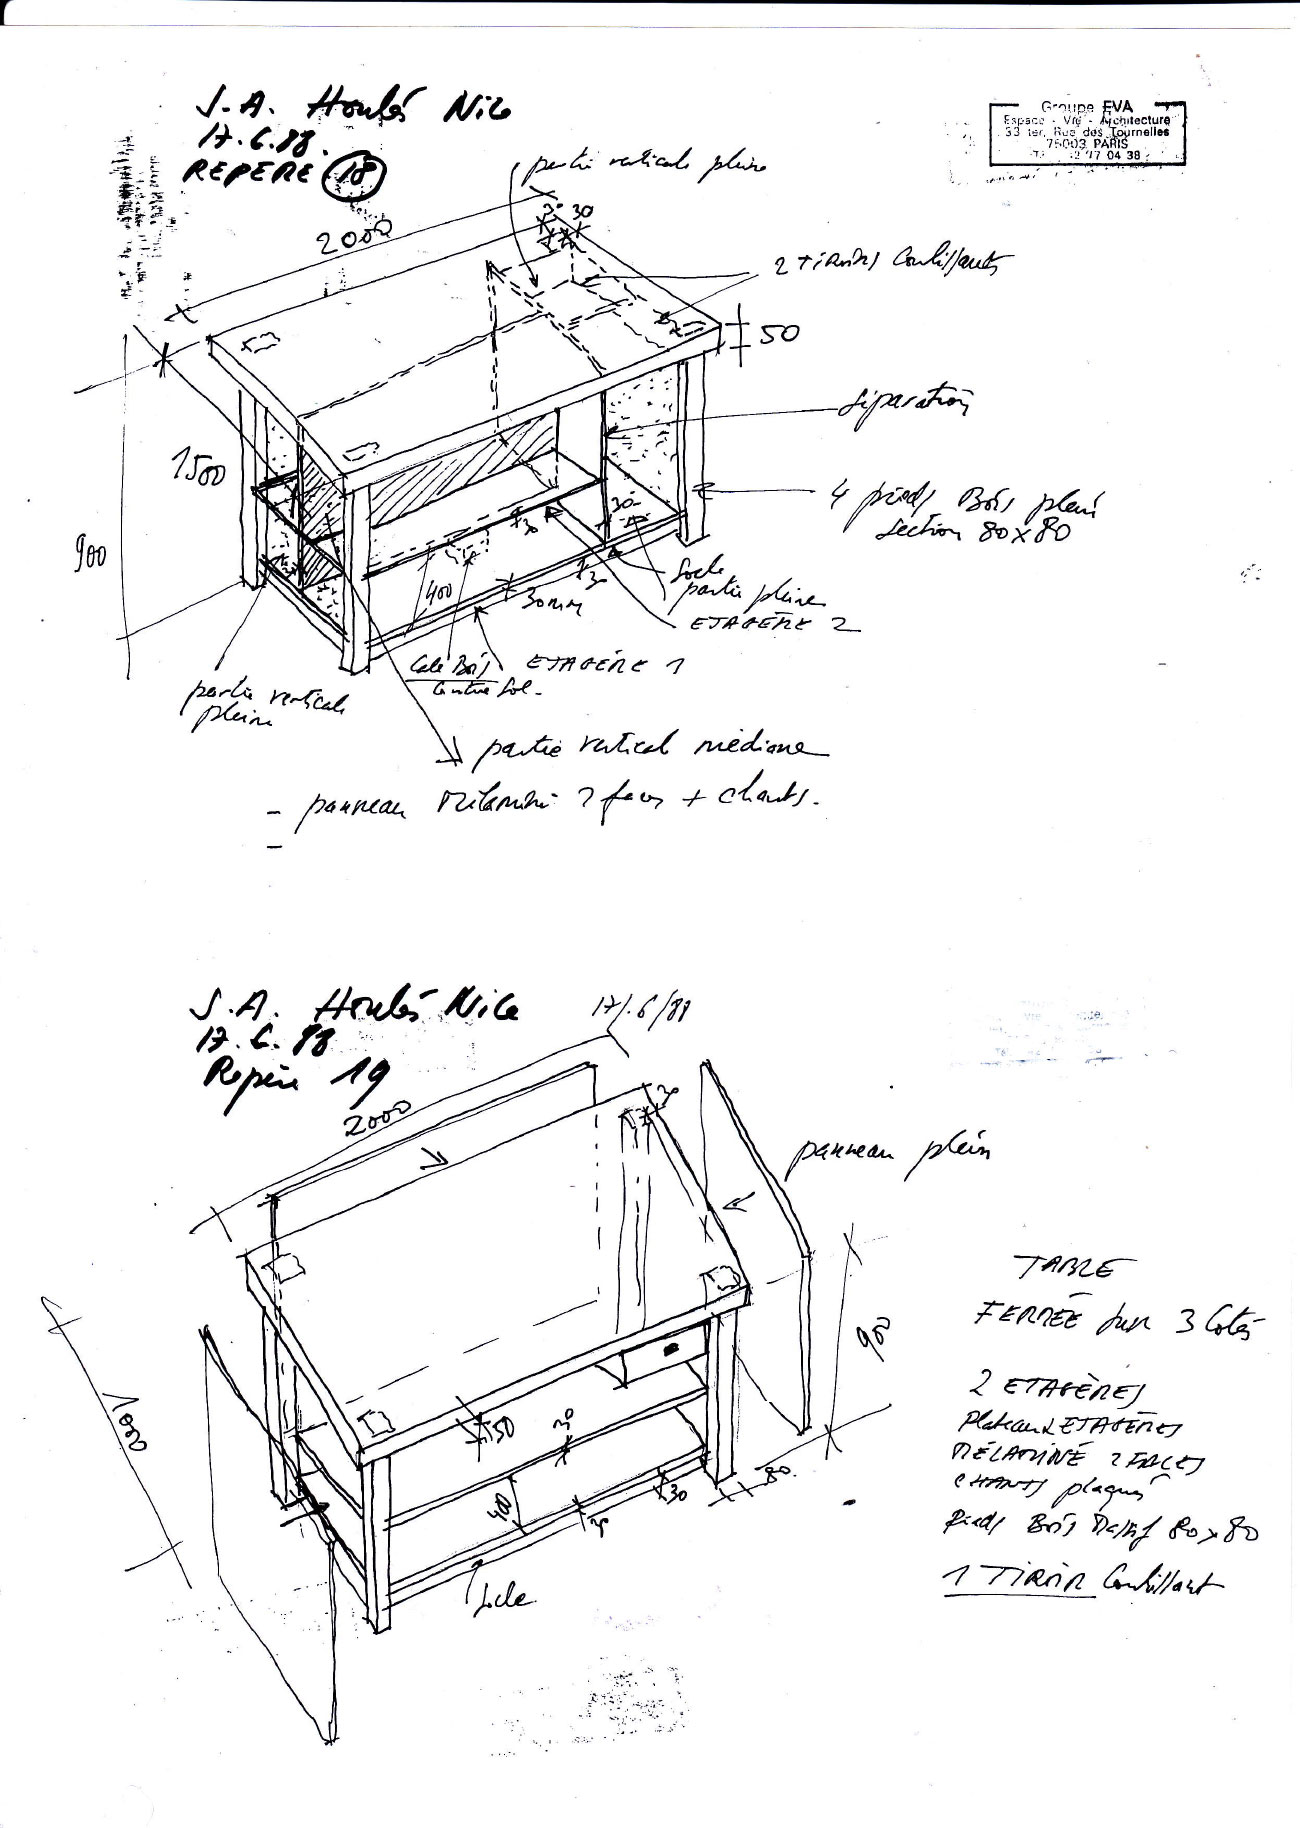 S.A. Houlès Nice
17.6.88.
REPERE 18
Groupe EVA
Espace - Vie - Architecture
33 ter, Rue des Tournelles
75003 PARIS
partie verticale pleine
2000
30 30
2 TIROIRS Coulissants
50
Séparation
1500
4 pieds Bois plein
section 80x80
900
30
30
Socle
partie pleine
400
30mm
30
ETAGÈRE 2
Cale Bois
Centre Sol.
ETAGÈRE 1
partie verticale
pleine
partie vertical médiane
- panneau Mélaminé 2 faces + chants.
-
S.A. Houlès Nice
17/.6/88
17.6.88
Repère 19
2000
30
panneau plein
TABLE
FERMÉE sur 3 Cotés
900
1000
2 ETAGÈRES
Plateau & ETAGÈRES
MÉLAMINÉ 2 FACES
CHANTS plaqués
Pieds Bois Massif 80x80
1 TIROIR Coulissant
50
30
400
30
80.
30
Socle